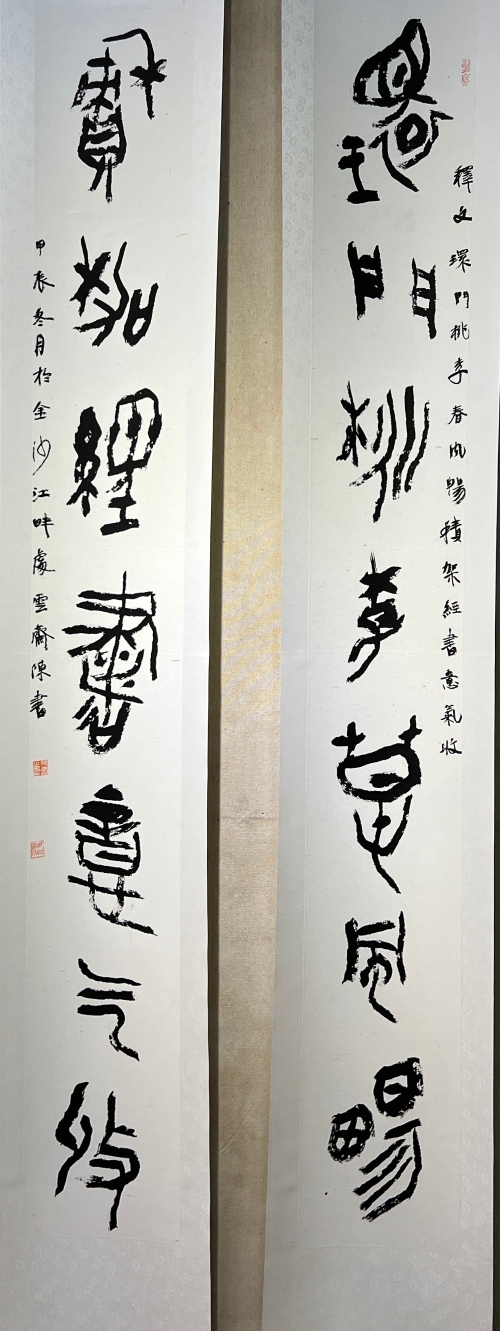 環門桃李春風暢
釋文環門桃李春風暢積架經書意氣收
積架經書意气收
甲辰冬月於金沙江畔處雲齋陳書